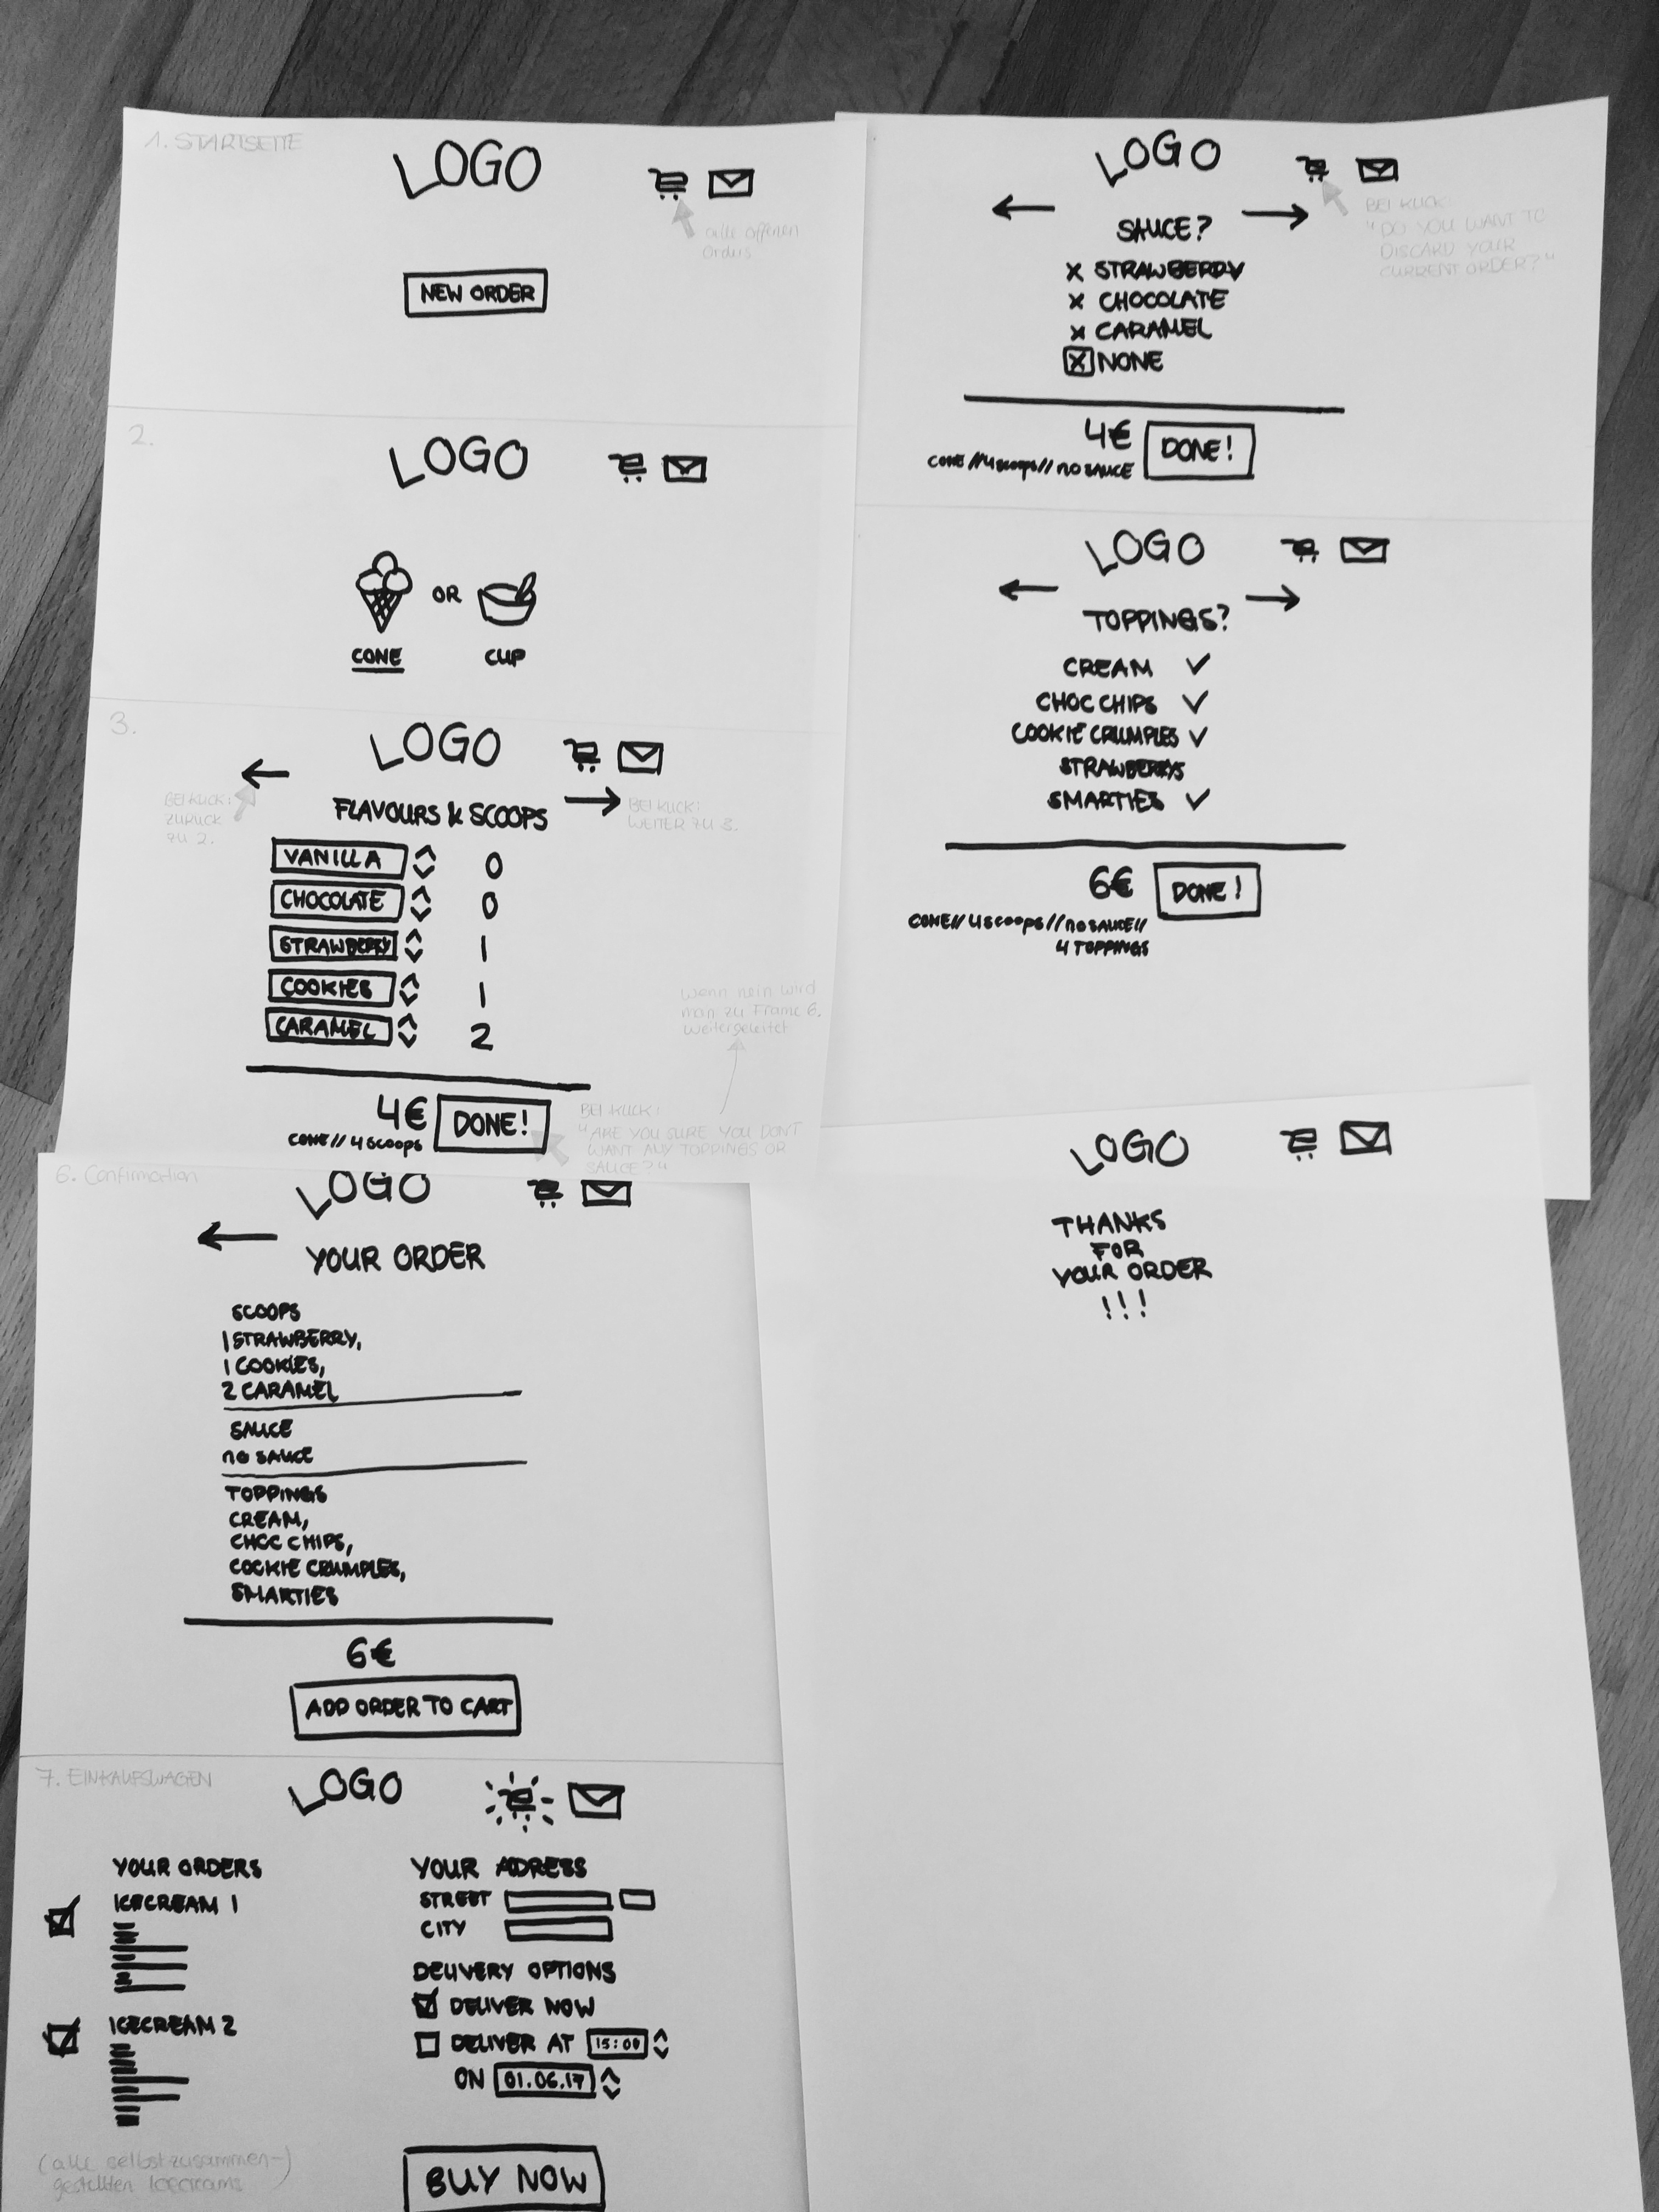 1. STARTSEITE
LOGO
alle offenen
Orders
NEW ORDER
2.
LOGO
OR
CONE
CUP
3.
LOGO
BEI KLICK:
ZURÜCK
ZU 2.
FLAVOURS & SCOOPS
BEI KLICK:
WEITER ZU 3.
VANILLA 0
CHOCOLATE 0
STRAWBERRY 1
COOKIES 1
CARAMEL 2
wenn nein wird
man zu Frame 6.
weitergeleitet
4€ DONE!
CONE // 4 scoops
BEI KLICK:
"ARE YOU SURE YOU DONT
WANT ANY TOPPINGS OR
SAUCE?"
LOGO
SAUCE?
BEI KLICK:
"DO YOU WANT TO
DISCARD YOUR
CURRENT ORDER?"
x STRAWBERRY
x CHOCOLATE
x CARAMEL
x NONE
4€ DONE!
CONE // 4 scoops // no SAUCE
LOGO
TOPPINGS?
CREAM ✓
CHOC CHIPS ✓
COOKIE CRUMPLES ✓
STRAWBERRYS
SMARTIES ✓
6€ DONE!
CONE // 4 scoops // no SAUCE //
4 TOPPINGS
6. Confirmation
LOGO
YOUR ORDER
SCOOPS
1 STRAWBERRY,
1 COOKIES,
2 CARAMEL
SAUCE
no SAUCE
TOPPINGS
CREAM,
CHOC CHIPS,
COOKIE CRUMPLES,
SMARTIES
6€
ADD ORDER TO CART
7. EINKAUFSWAGEN
LOGO
YOUR ORDERS
ICECREAM 1
ICECREAM 2
(alle selbstzusammen-)
gestellten Icecreams
YOUR ADRESS
STREET
CITY
DELIVERY OPTIONS
DELIVER NOW
DELIVER AT 15:00
ON 01.06.17
BUY NOW
LOGO
THANKS
FOR
YOUR ORDER
!!!